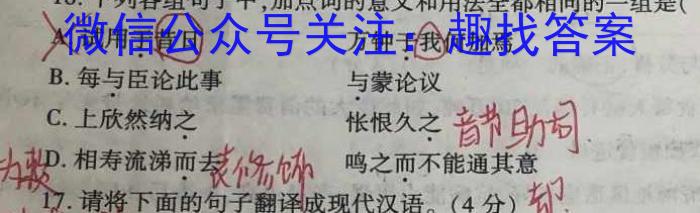 16. 下列各组句子中,加点词的意义和用法全都相同的一组是(
微信公众号关注:趣找答案
A. 试用于昔日 万钟于我何加焉
B. 每与臣论此事 与蒙论议
C. 上欣然纳之 怅恨久之 音节助词
D. 相寿流涕而去 表修饰 鸣之而不能通其意
17. 请将下面的句子翻译成现代汉语。(4 分) 却